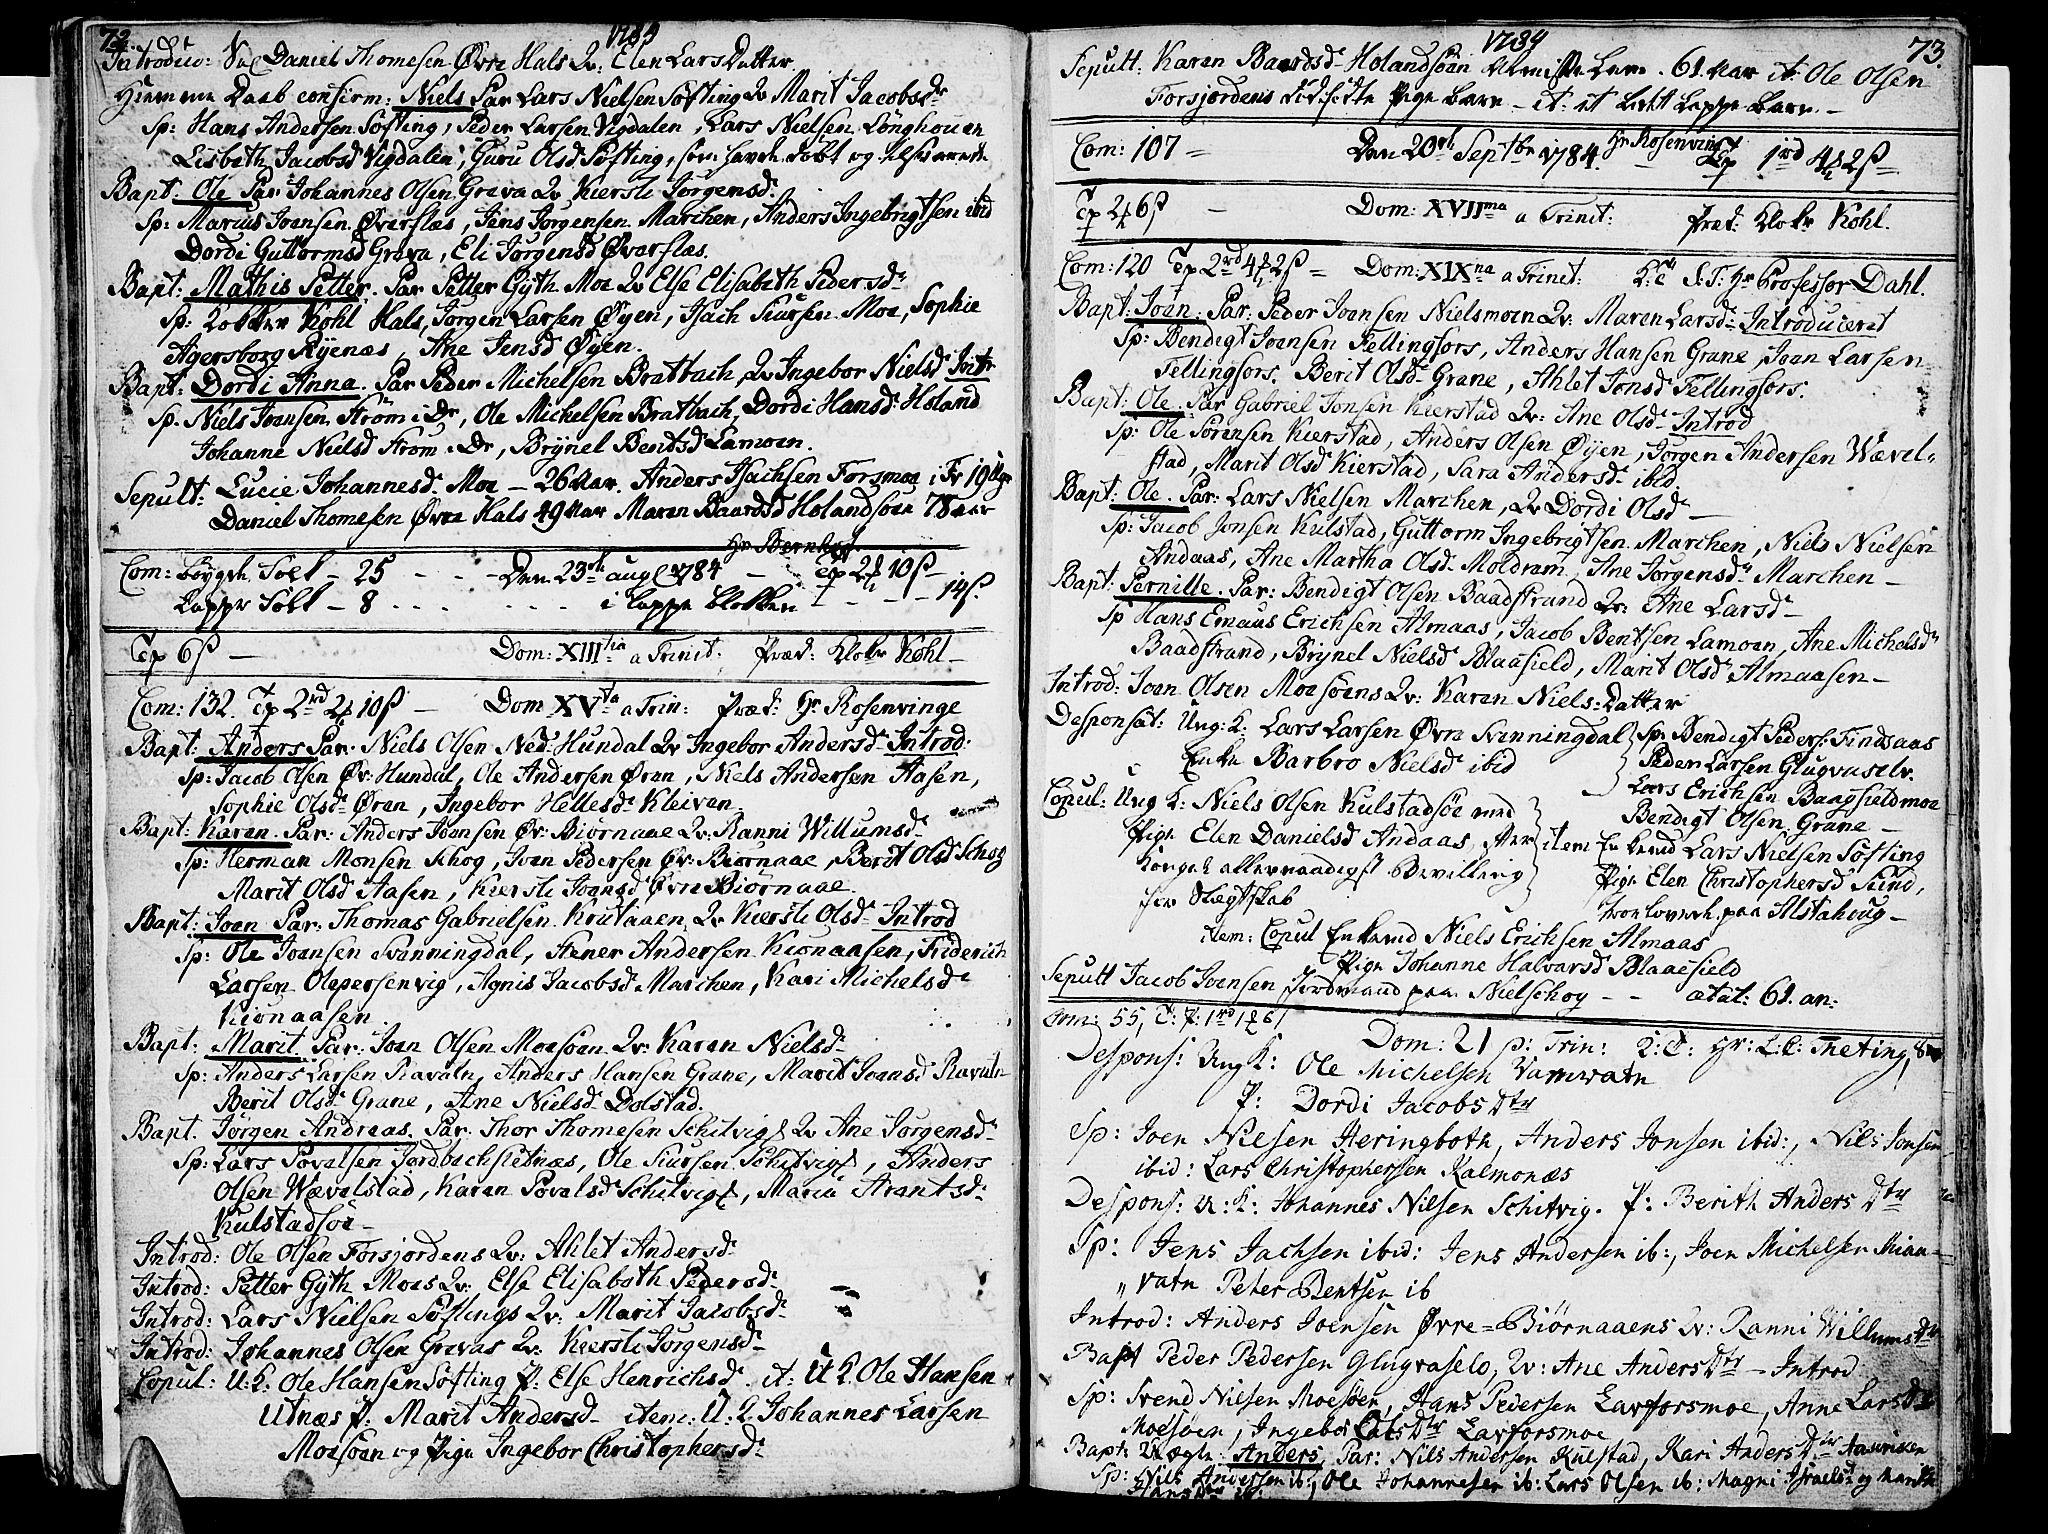 72.
1784
Introduc: Sal Daniel Thomesen Øvre Hals Qv: Elen Lars Datter.
Hiemme Daab confirm: Niels Par Lars Nielsen Søfting Qv Marit Jacobsdr
Sp: Hans Andersen Søfting, Peder Larsen Vigdalen, Lars Nielsen
Lisbeth Jacobsd Vigdalen, Guru Olsd Søfting, som hafde
Bapt: Ole Par Johannes Olsen Grava Qv Kiersti Jørgensd.
Sp: Marius Joensen Øverflæs, Jens Jørgensen Marchen, Anders Ingebrigtsen ibid
Dordi Guttormsd Grava, Eli Jørgensd Øverflæs.
Bapt: Mathis Petter. Par Petter Gyth Moe Qv Else Elisabeth Pedersdr
Sp: Klokker Kohl Hals, Jørgen Larsen Øyen, Isach Siursen Moe, Sophie
Agersborg Ryenæs, Ane Jensd Øyen.
Bapt: Dordi Anna. Par Peder Michelsen Bratbach, Qv Ingebor Nielsd Intr
Sp. Niels Joensen Strøm i Dr, Ole Michelsen Bratbach, Dordi Hansd. Holand
Johanne Nielsd Strøm. Dr, Brynel Bentsd Lamoen.
Sepult: Lucie Johannesd. Moe – 26 Aar. Anders Isachsen Forsmoe, 19 Uger
Daniel Thomesen Øvre Hals 49 Aar Maren Baardsd Holandsøen 78 Aar
Hr Bernhoft
Com: Bøygde Folk – 25 – Den 23de aug 1784 – Tp 2 10 ß –
Lappe Folk – 8 i Lappe Blokken – 14 ß.
Tp 6 ß – Dom: XIIItia a Trinit: Præd: Klokr Kohl –
Com: 132. Tp 2rd 2 10 ß – Dom XVta a Trin: Præd: Hr Rosenvinge
Bapt: Anders Par: Niels Olsen Ned: Hundal Qv Ingebor Andersd Introd:
Sp: Jacob Olsen Øv: Hundal, Ole Andersen Øren, Niels Andersen Aasen,
Sophie Olsd Øren, Ingebor Hellesd Kleiven.
Bapt: Karen. Par: Anders Joensen Øv: Biørnaae Qv: Ranni Willumsd
Sp: Herman Monsen Schog, Joen Pedersen Øv: Biørnaae, Berit Olsd Schog
Marit Olsd Aasen, Kiersti Joensd Øvre Biørnaae.
Bapt: Joen Par: Thomas Gabrielsen Krutaaen Qv Kiersti Olsd Introd
Sp: Ole Joensen Svenningdal, Stener Andersen Kionaasen, Friderich
Larsen Olepersenvig, Agnis Jacobsd Marchen, Kari Michelsd
Kionaasen.
Bapt: Marit Par: Joen Olsen Moesøen Qv: Karen Nielsd
Sp: Anders Larsen Ravaln, Anders Hansen Grane, Marit Joensd Ravaln
Berit Olsd Grane, Ane Nielsd Dolstad.
Bapt. Jørgen Andreas. Par Thor Thomesen Schitvig Qv Ane Jørgensd
Sp: Lars Povelsen Jordbachsletnæs, Ole Siursen Schitvig, Anders
Olsen Wævelstad, Karen Povelsd Schitvig, Maria Arentsd
Kulstadsøe –
Introd: Ole Olsen Forsjordens Qv: Ahlet Andersd
Introd: Petter Gyth Moes Qv: Else Elisabeth Pedersd
Introd: Lars Nielsen Søftings Qv: Marit Jacobsd
Introd: Johannes Olsen Gravas Qv: Kiersti Jørgensd
Copul: U: K. Ole Hansen Søfting P: Else Henrichsd it: U K Ole Hansen
Utnæs P: Marit Andersd item: U: K Johannes Larsen
Moesøen og Pige Ingebor Christophersd
1784
73
Sepult: Karen Baardsd Holandsøen 61 Aar it Ole Olsen
Forsjordens Pige Barn – it: et Lidt Lappe Barn. –
Com: 107 = Den 20de Septbr 1784. Hr Rosenvinge Tp 1rd 4 2 ß
Tp 2 6 ß – Dom: XVIIma a Trinit: Præd: Klokr Kohl.
Com: 120 Tp 2rd 4 2 ß = Dom: XIXna a Trinit: S: T: Hr Professor Dahl.
Bapt: Joen: Par: Peder Joensen Nielsmoen Qv: Maren Larsd Introduceret
Sp: Bendigt Joensen Fellingfors, Anders Hansen Grane, Joen Larsen
Fellingfors. Berit Olsd Grane, Ahlet Jonsd Fellingfors.
Bapt: Ole Par Gabriel Jonsen Kierstad Qv: Ane Olsd Introd
Sp: Ole Sørensen Kierstad, Anders Olsen Øyen, Jørgen Andersen Wævel-
stad, Marit Olsd Kierstad, Sara Andersd ibid.
Bapt: Ole. Par: Lars Nielsen Marchen, Qv Dordi Olsd –
Sp: Jacob Jonsen Kulstad, Guttorm Ingebrigtsen Marchen, Niels Nielsen
Andaas, Ane Martha Olsd Moldrem, Ane Jørgensd Marchen –
Bapt: Pernille. Par: Bendigt Olsen Baadstrand Qv: Ane Larsd
Sp Hans Emaus Erichsen Almaas, Jacob Bentsen Lamoen, Ane Michelsd
Baadstrand, Brynel Nielsd Blaafield, Marit Olsd Almaasen –
Introd: Joen Olsen Moesøens Qv: Karen Niels: Datter
Desponsat: Ung: K: Lars Larsen Øvre Svenningdal
Enke Barbro Nielsd ibid
Sp: Bendigt Peders: Findsaas
Peder Larsen Glugvaselv.
Lars Erichsen Baagfieldmoe
Bendigt Olsen Grane –
Copul: Ung K: Niels Olsen Kulstadsøe med
Pige Elen Danielsd Andaas, efter
Kongel allernaadigst Bevilling
for Slegtskab
item Enkemd Lars Nielsen Søfting
Pige Elen Christophersd Sund,
trolovede paa Alstahoug –
item: Copul Enkemd Niels Erichsen Almaas
Pige Johanne Halvarsd Blaafield
Sepult Jacob Joensen Jordmand paa Nielschog – – ætat: 61. an:
Com: 55, T: P: 1rd 1 6
Dom: 21 p: Trin: Hr: L: C: Theting,
Despons: Ung K: Ole Michelsen Vamvatn
P: Dordi Jacobs Dtr
Sp: Joen Nilsen Heringboth, Anders Jonsen ibid:, Nils Jonsen
ibid: Lars Christophersen Kalmonæs
Despons: U: K: Johannes Nilsen Schitvig. P: Berith Anders Dtr
Sp: Jens Jachsen ibid: Jens Andersen ib:, Joen Michelsen Mian-
" vatn Peter Bentsen ib
Introd: Anders Joensen Øvre=Biørnaaens Qv: Ranni Willums Dtr
Bapt Peder Pedersen Glugvaselv, Qv: Ane Anders Dtr – Introd
Sp: Svend Nilsen Moesøen, Hans Pedersen Laxforsmoe, Anne Lars Dtr
Moesøen, Ingebor Dtr Laxforsmoe
Bapt: Uægte: Anders, Par: Nils Andersen Kulstad, Kari Anders Dtr
Sp: Nils Andersen ib:, Ole Johannesen ib: Lars Olsen ib: Magni Israelsd og